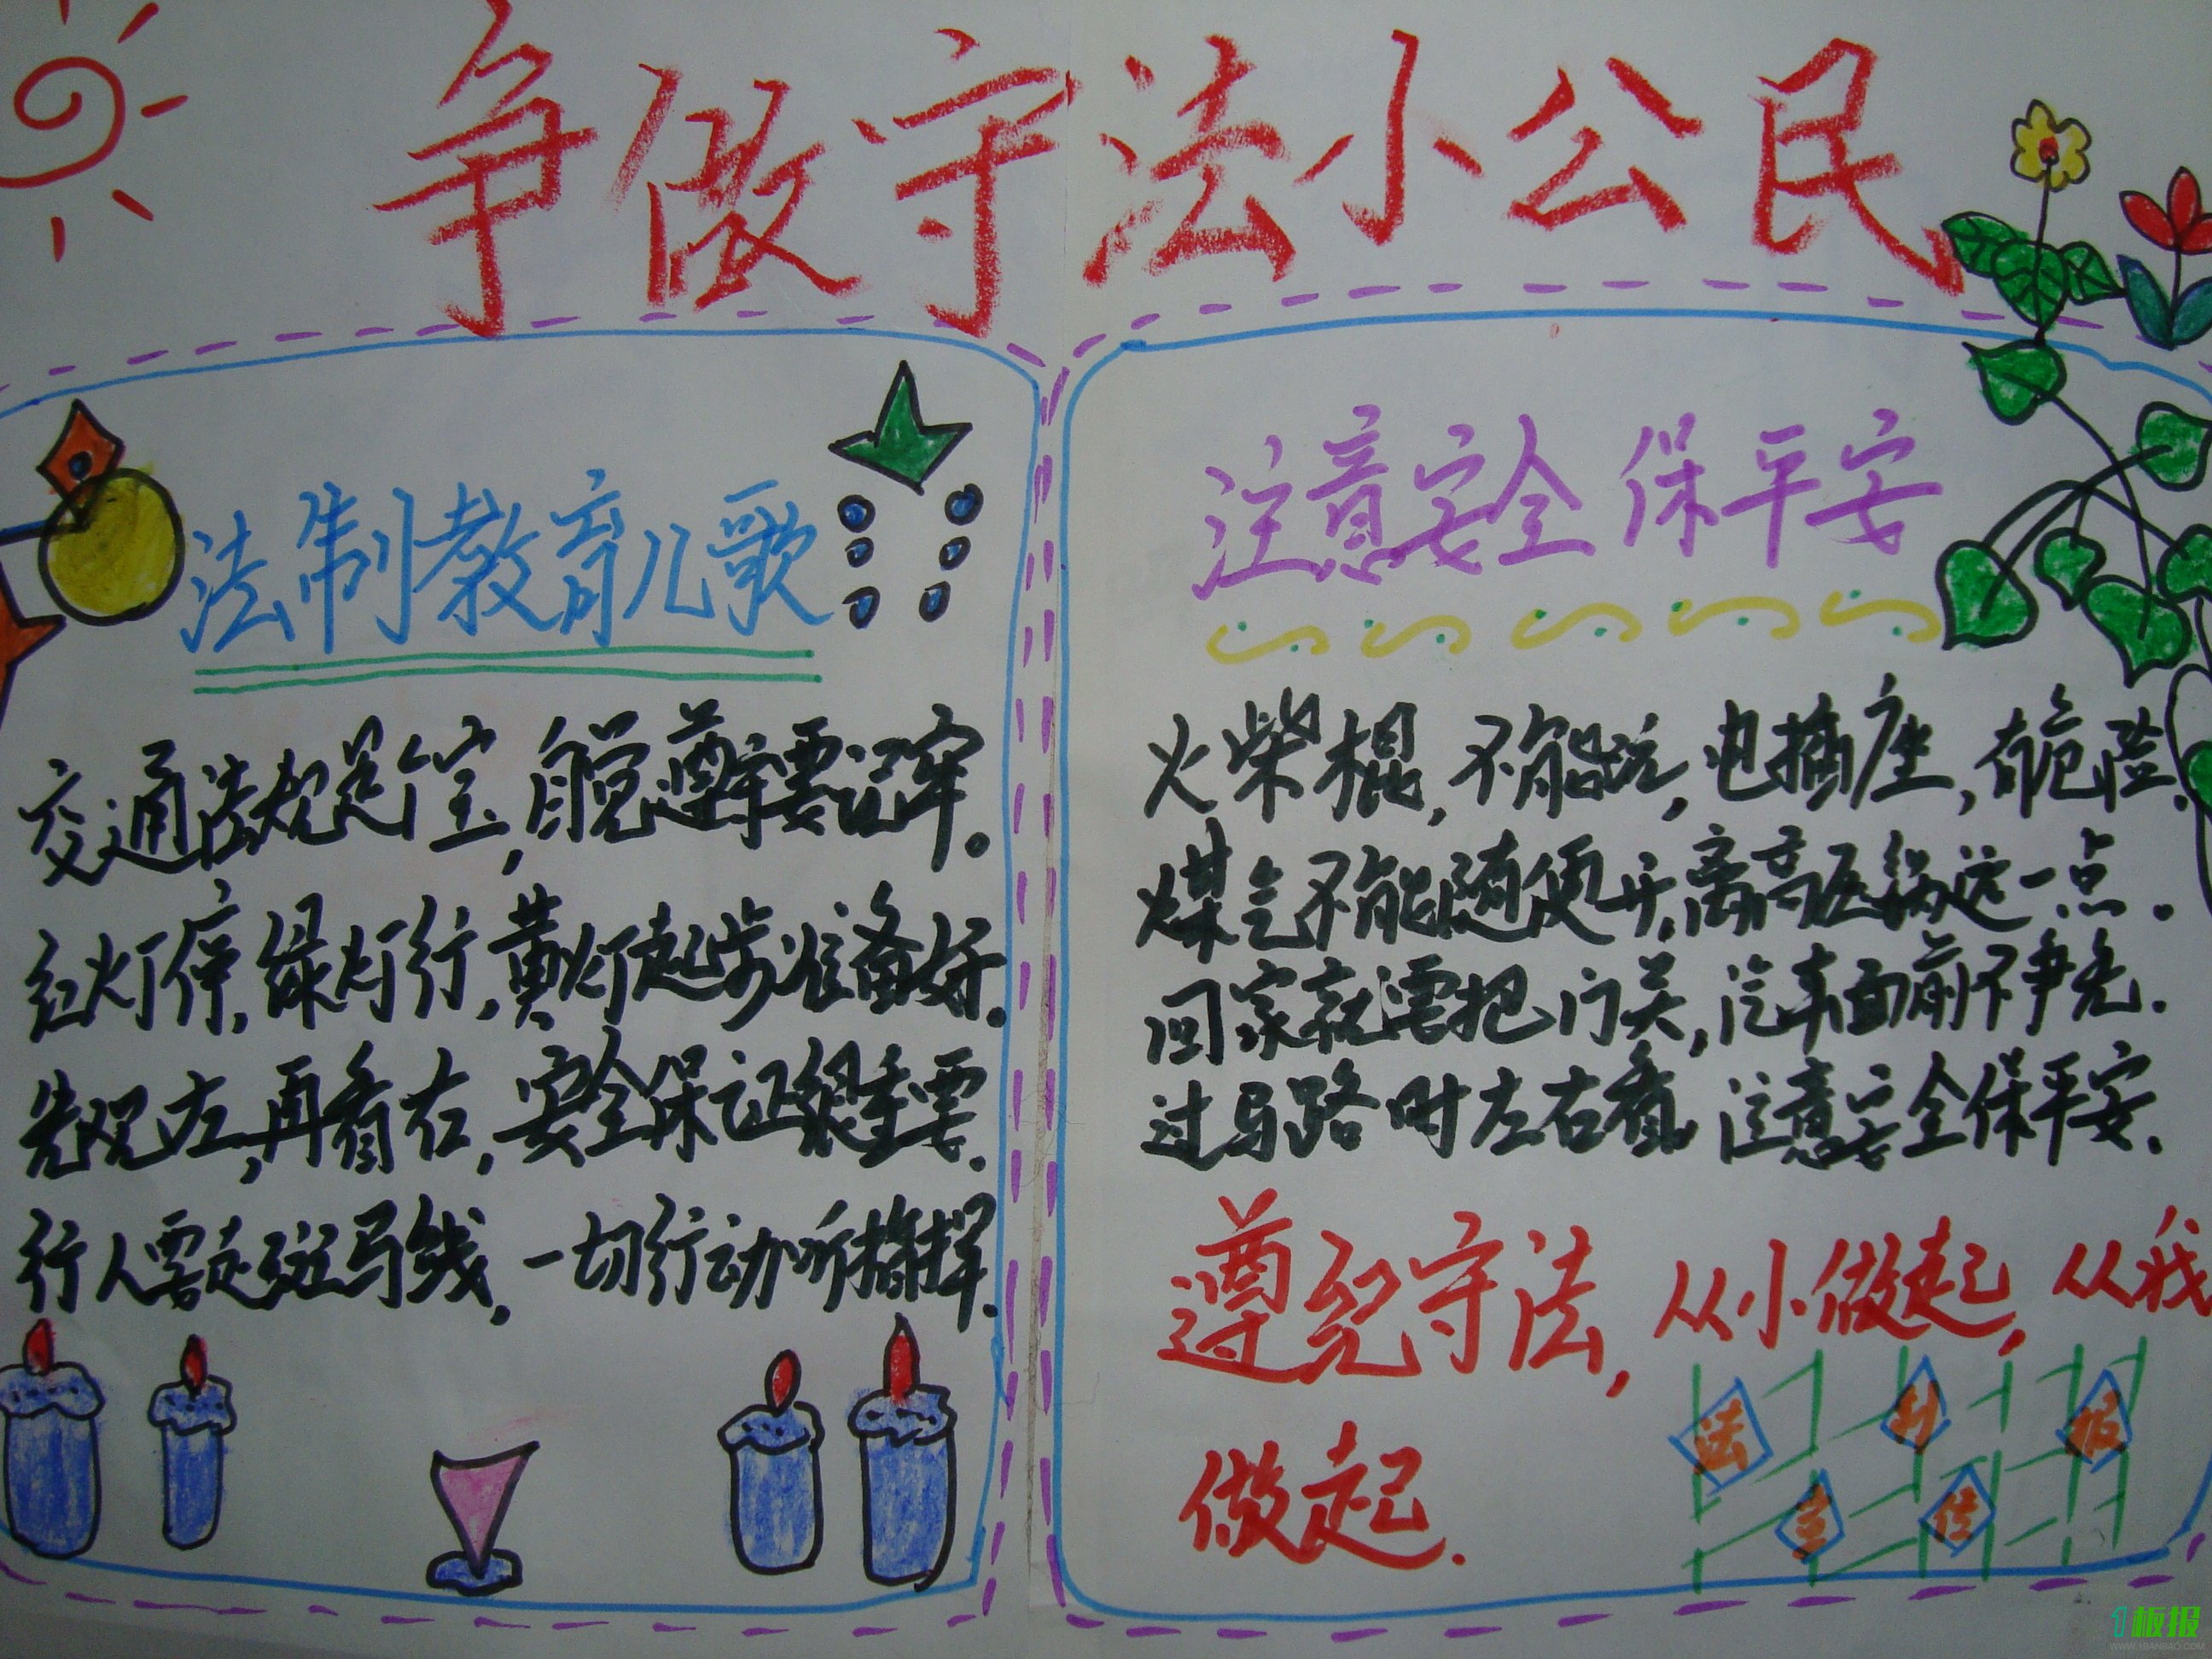 争做守法小公民
法制教育儿歌
交通法规是个宝，自觉遵守要记牢。
红灯停，绿灯行，黄灯起步准备好。
先观左，再看右，安全保证很重要。
行人要走斑马线，一切行动听指挥。
注意安全保平安
火柴棍，不能玩，电插座，有危险，
煤气不能随便开，离高压锅远一点。
回家就要把门关，汽车面前不争先。
过马路时左右看，注意安全保平安。
遵纪守法，从小做起，从我
做起。
法 制 报
宣 传
1板报
WWW.1BANBAO.COM